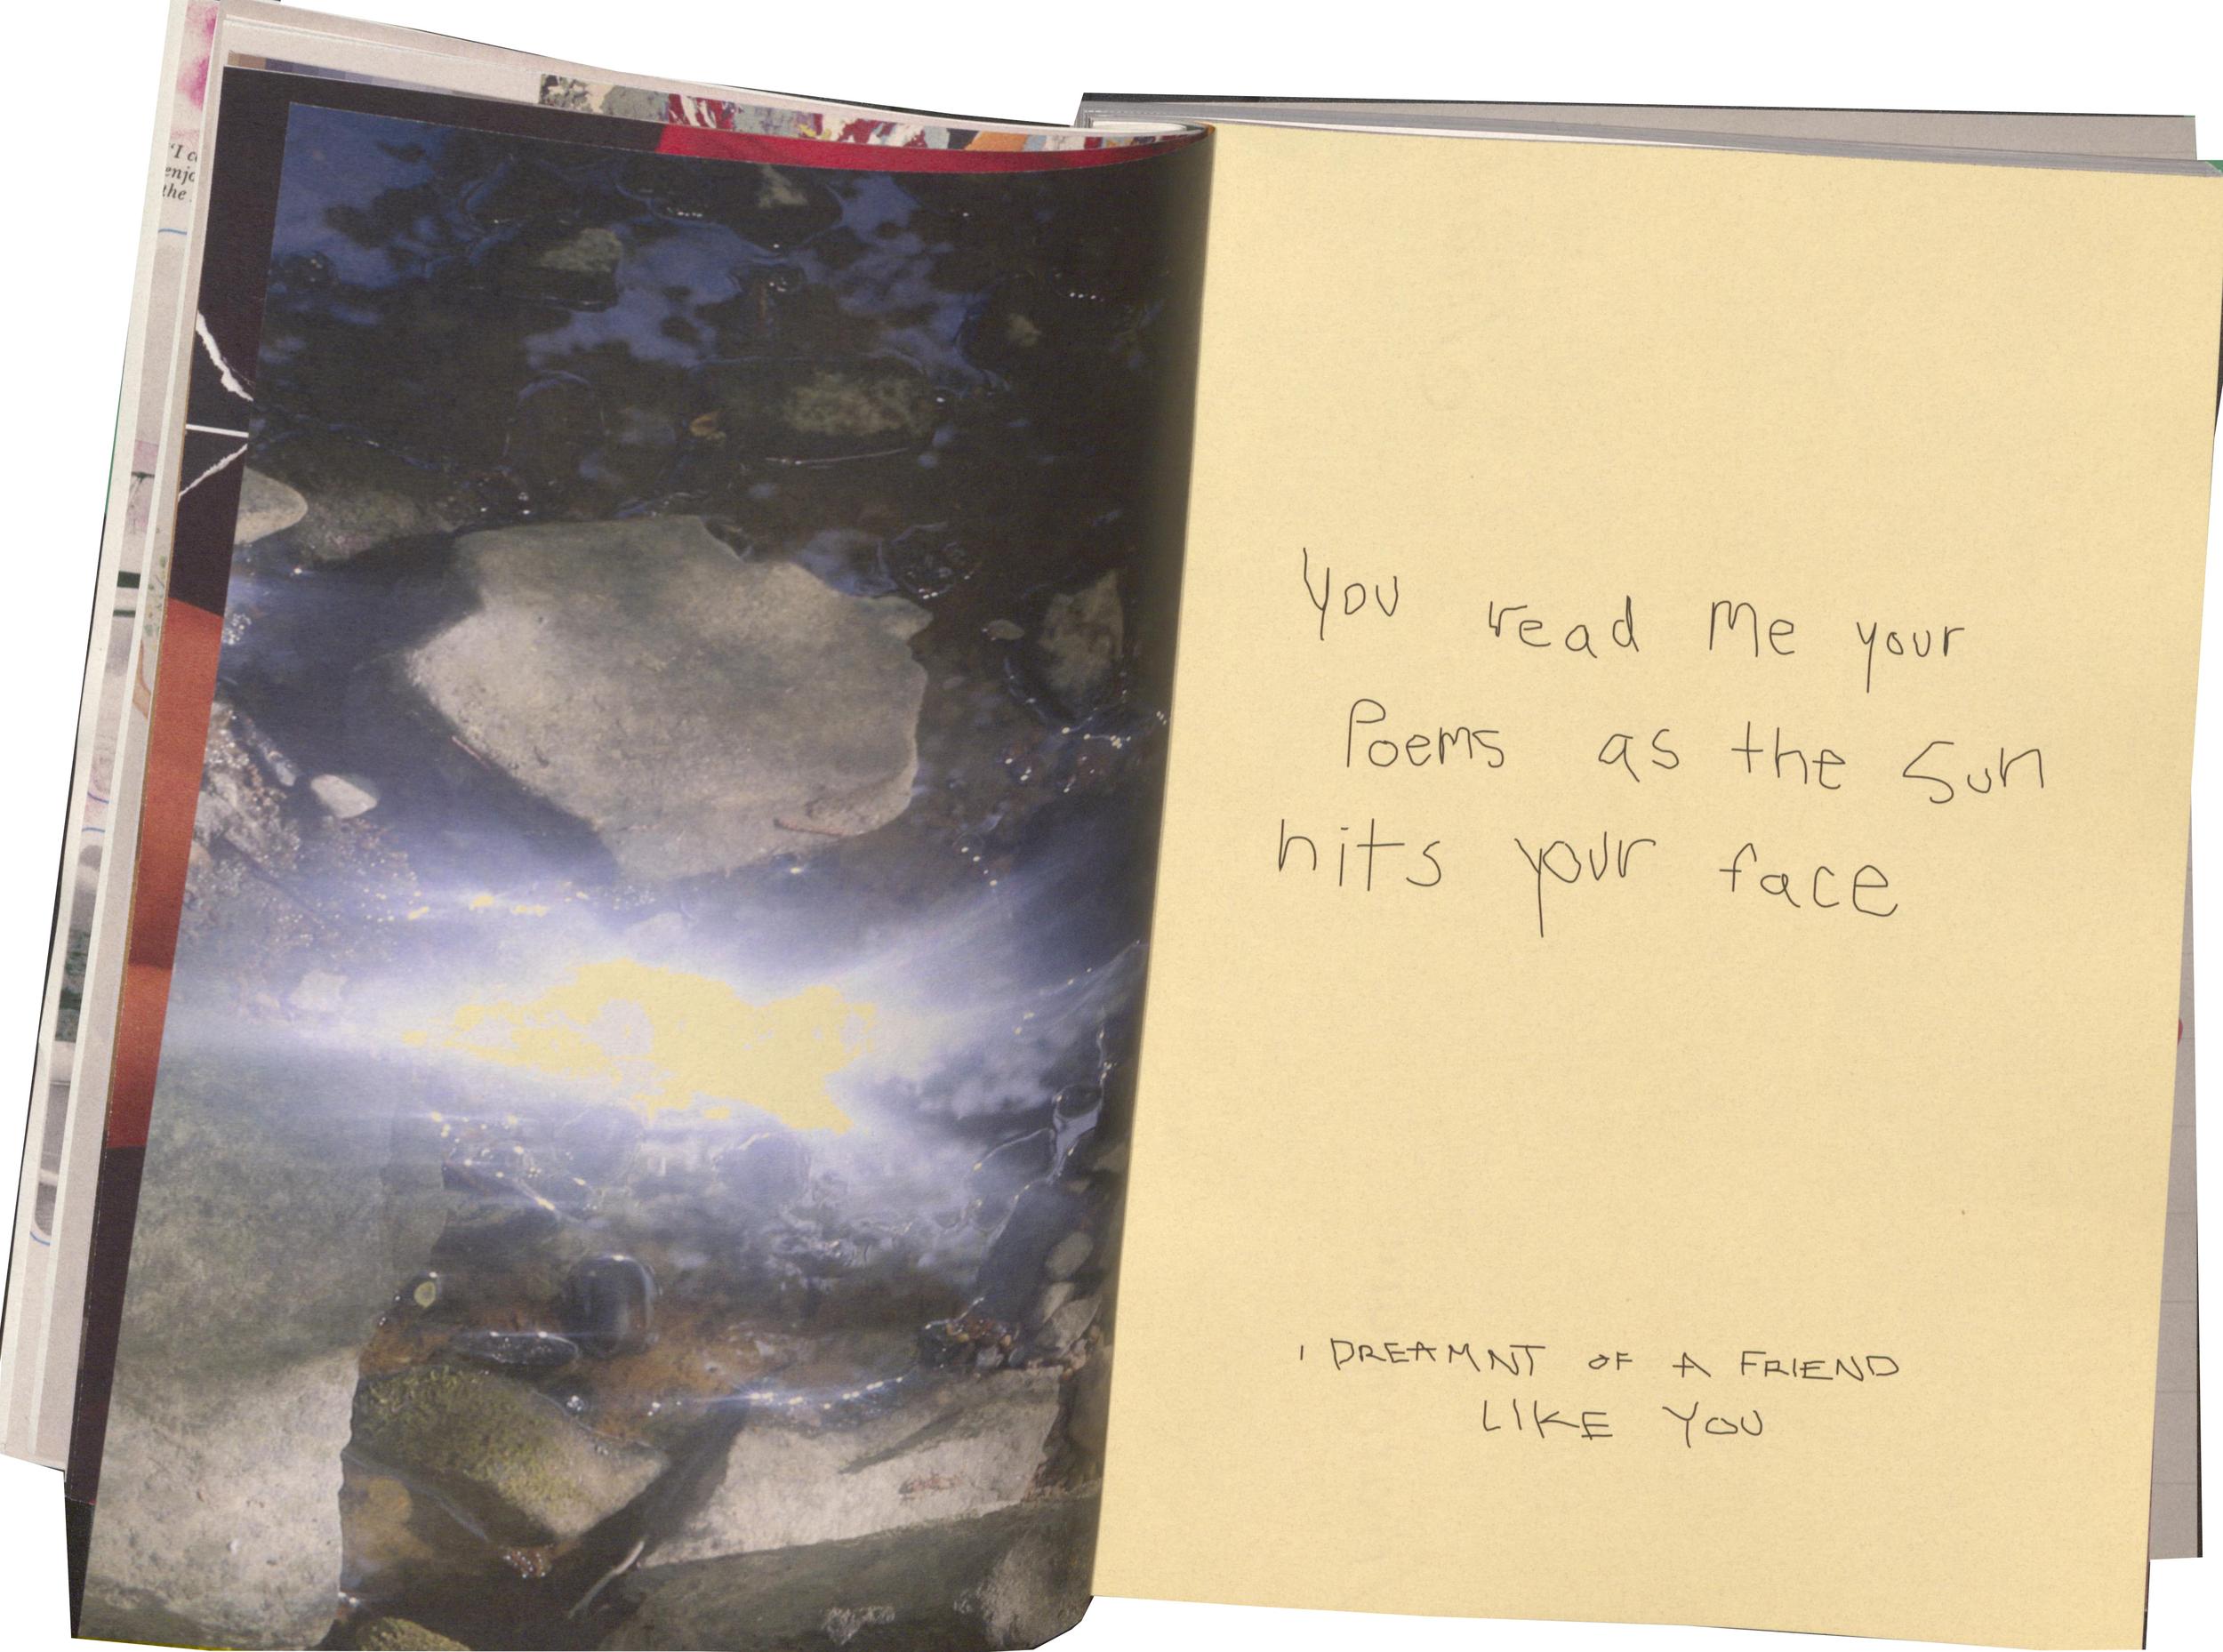 "I
the
You read Me your
Poems as the Sun
hits your face
I DREAMNT OF A FRIEND
LIKE YOU